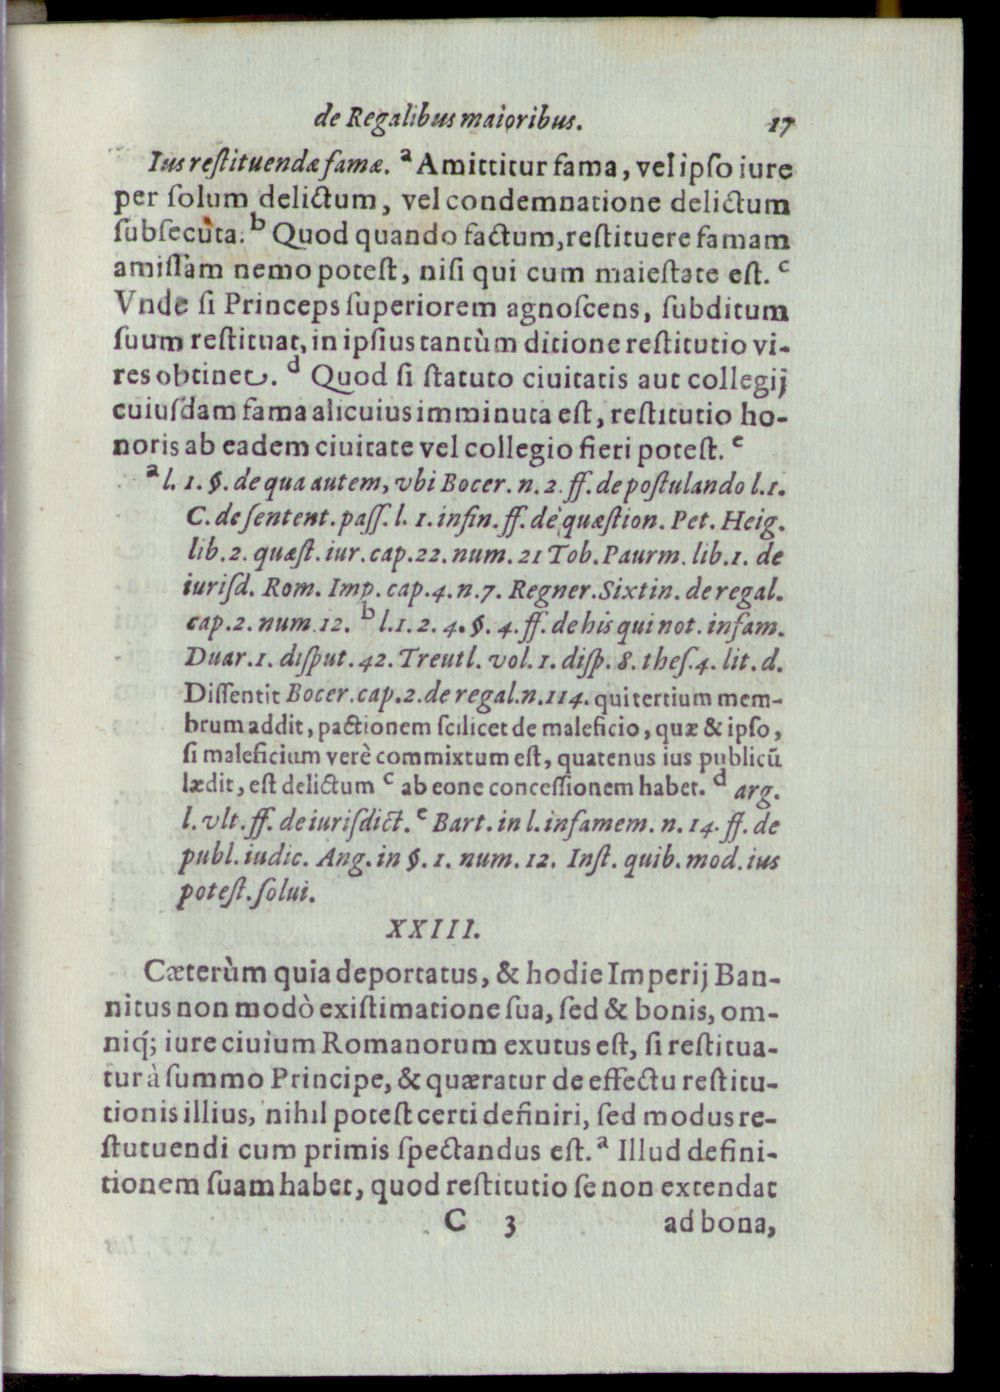 de Regalibus maioribus. 17
Ius reſtituendæ famæ. a Amittitur fama, vel ipſo iure
per ſolum delictum, vel condemnatione delictum
ſubſecùta. b Quod quando factum, reſtituere famam
amiſſam nemo poteſt, niſi qui cum maieſtate eſt. c
Vnde ſi Princeps ſuperiorem agnoſcens, ſubditum
ſuum reſtituat, in ipſius tantùm ditione reſtitutio vi-
res obtinet. d Quod ſi ſtatuto ciuitatis aut collegij
cuiuſdam fama alicuius imminuta eſt, reſtitutio ho-
noris ab eadem ciuitate vel collegio fieri poteſt. e
a l. 1. §. de qua autem, vbi Bocer. n. 2. ff. de poſtulando l. 1.
C. de ſentent. paſſ. l. 1. in fin. ff. de quæſtion. Pet. Heig.
lib. 2. quæſt. iur. cap. 22. num. 21 Tob. Paurm. lib. 1. de
iuriſd. Rom. Imp. cap. 4. n. 7. Regner. Sixtin. de regal.
cap. 2. num. 12. b l. 1. 2. 4. §. 4. ff. de his qui not. infam.
Duar. 1. diſput. 42. Treutl. vol. 1. diſp. 8. theſ. 4. lit. d.
Diſſentit Bocer. cap. 2. de regal. n. 114. qui tertium mem-
brum addit, pactionem ſcilicet de maleficio, quæ & ipſo,
ſi maleficium verè commixtum eſt, quatenus ius publicū
lædit, eſt delictum c ab eo ne conceſſionem habet. d arg.
l. vlt. ff. de iuriſdict. e Bart. in l. infamem. n. 14. ff. de
publ. iudic. Ang. in §. 1. num. 12. Inſt. quib. mod. ius
poteſt. ſolui.
XXIII.
Cæterùm quia deportatus, & hodie Imperij Ban-
nitus non modò exiſtimatione ſua, ſed & bonis, om-
niq́; iure ciuium Romanorum exutus eſt, ſi reſtitua-
tur à ſummo Principe, & quæratur de effectu reſtitu-
tionis illius, nihil poteſt certi definiri, ſed modus re-
ſtutuendi cum primis ſpectandus eſt. a Illud defini-
tionem ſuam habet, quod reſtitutio ſe non extendat
C 3 ad bona,